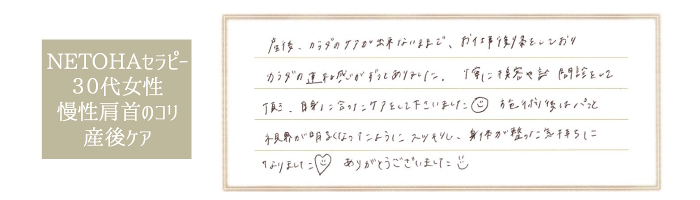 NETOHAセラピー
30代女性
慢性肩首のコリ
産後ケア
産後、カラダのケアが出来ないままで、お仕事復帰をしており
カラダの重だる感がずっとありました。丁寧に接客や 問診をして
頂き、自身に合ったケアをして下さいました 施術後はパッと
視界が明るくなったようにスッキリし、身体が整った気持ちに
なりました ありがとうございました